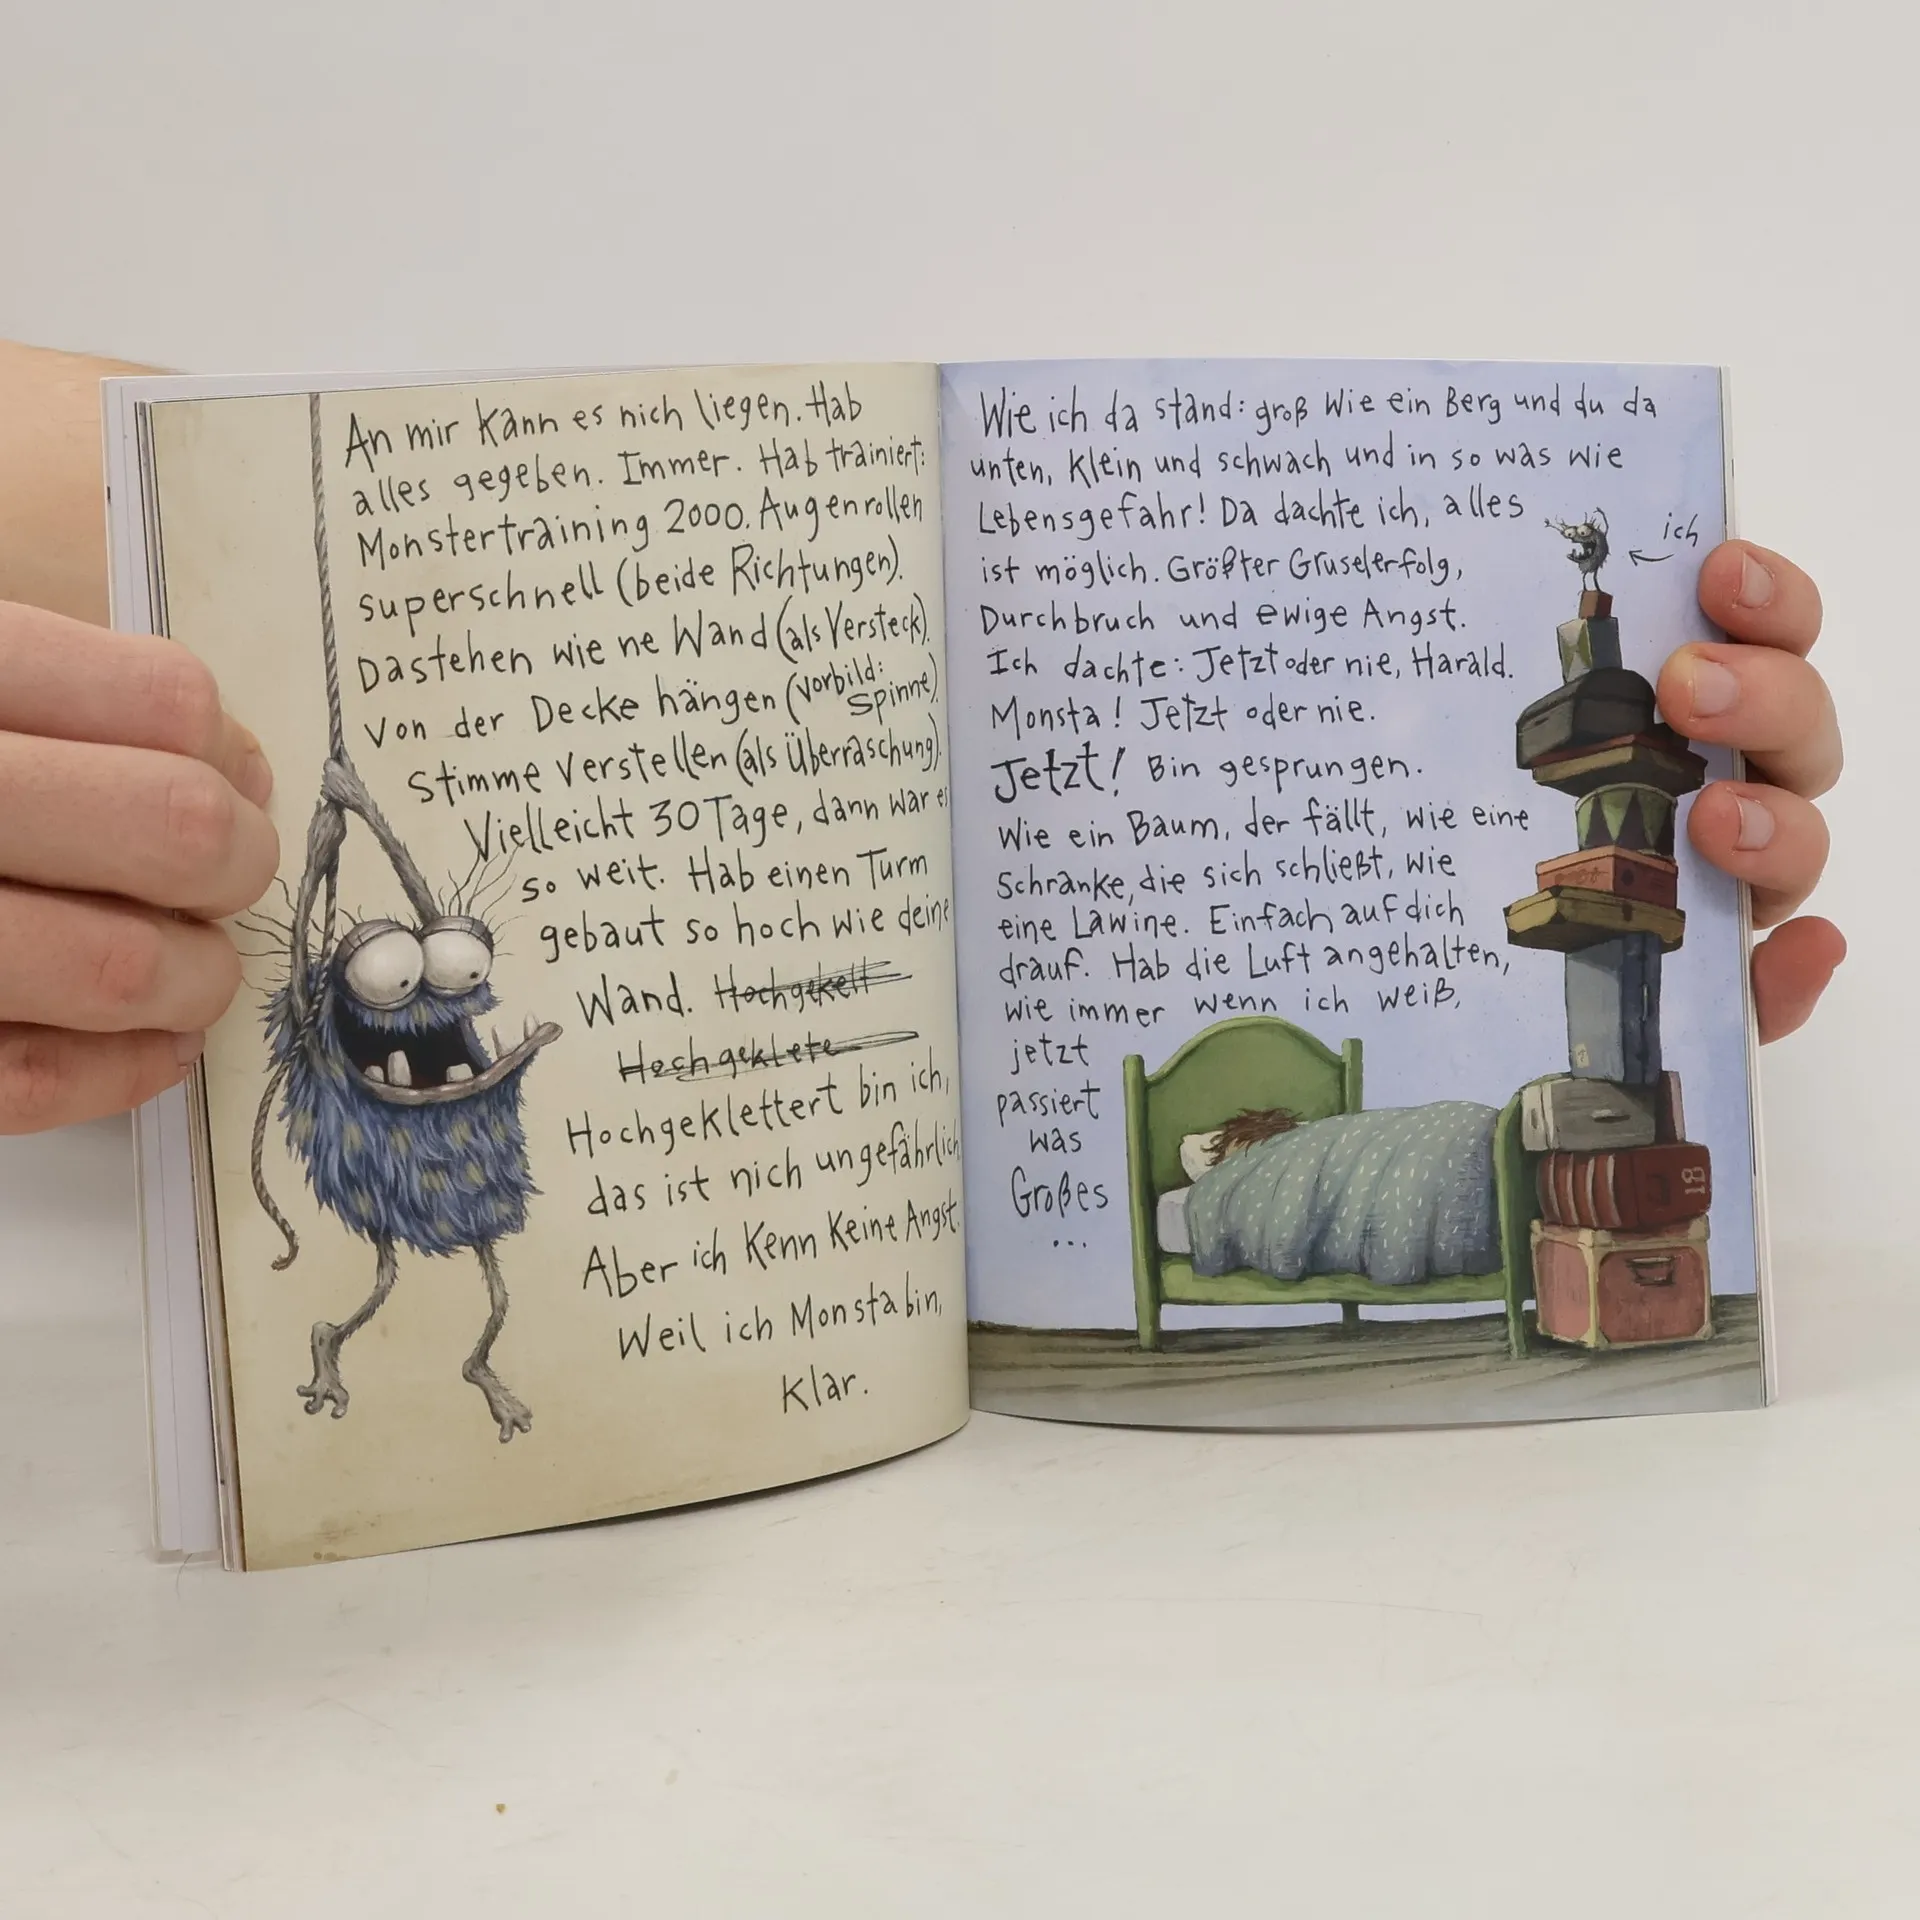 An mir kann es nich liegen. Hab
alles gegeben. Immer. Hab trainiert:
Monstertraining 2000. Augenrollen
superschnell (beide Richtungen).
Dastehen wie ne Wand (als Versteck).
Von der Decke hängen (Vorbild:
Spinne)
Stimme Verstellen (als Überraschung).
Vielleicht 30 Tage, dann war es
so weit. Hab einen Turm
gebaut so hoch wie deine
Wand. Hochgekelt
Hochgeklete
Hochgeklettert bin ich,
das ist nich ungefährlich
Aber ich Kenn Keine Angst.
Weil ich Monsta bin,
Klar.
Wie ich da stand: groß Wie ein Berg und du da
unten, Klein und schwach und in so was wie
Lebensgefahr! Da dachte ich, alles
ich
ist möglich. Größter Gruselerfolg,
Durchbruch und ewige Angst.
Ich dachte: Jetzt oder nie, Harald.
Monsta! Jetzt oder nie.
Jetzt! Bin gesprungen.
Wie ein Baum, der fällt, wie eine
Schranke, die sich schließt, wie
eine Lawine. Einfach auf dich
drauf. Hab die Luft angehalten,
wie immer wenn ich weiß,
jetzt
passiert
was
Großes
...
18